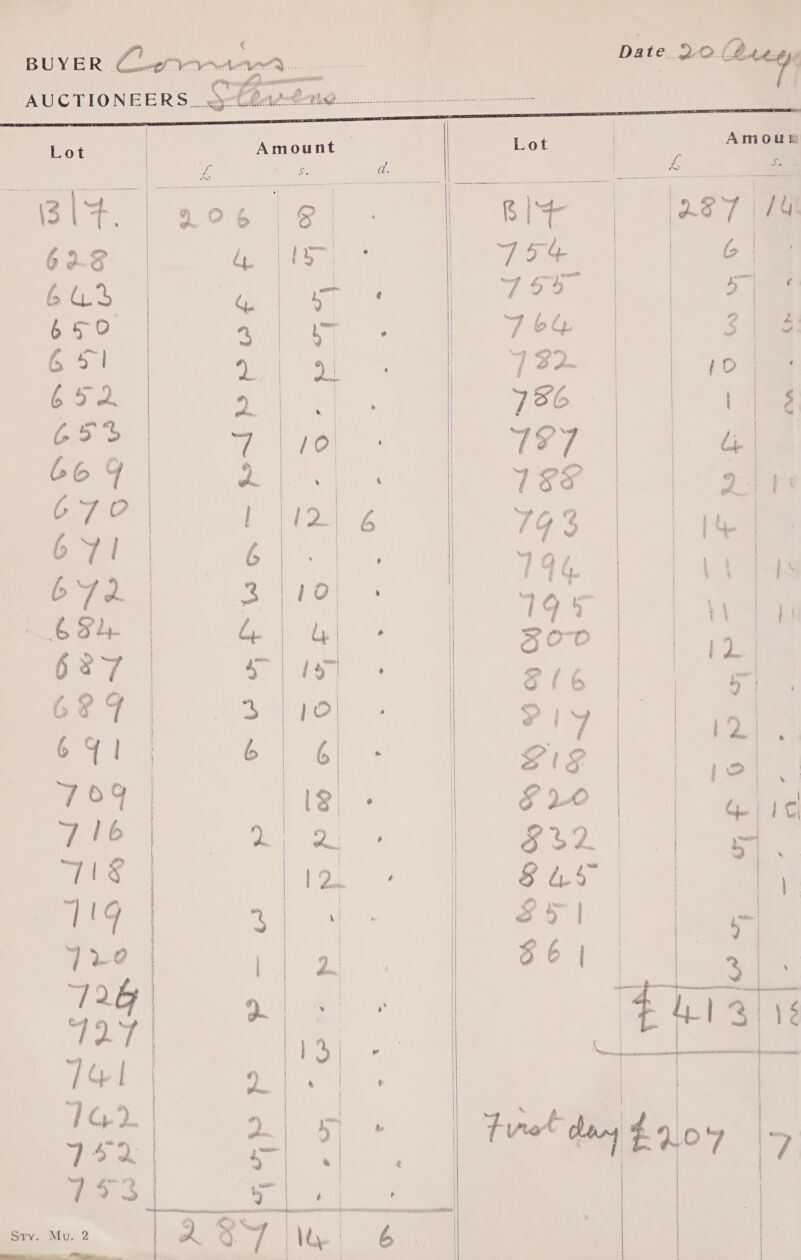 BUYER
Date 20 Aug
AUCTIONEERS Stevens
Lot Amount
£ s. d.
B/F. 206 8 .
628 4 15 .
643 4 5 .
650 3 5 .
651 2 2 .
652 2 . .
653 7 10 .
669 2 . .
670 1 12 6
671 6 . .
672 3 10 .
684 4 4 .
687 5 15 .
689 3 10 .
691 6 6 .
709 18 .
716 2 2 .
718 12 .
719 3 . .
720 1 2
726 2 . .
727 13 .
741 2 . .
742 2 5 .
752 5 . .
753 5 . .
287 14 6
Sty. Mu. 2
Lot Amoun
£ s.
B/F 287 14
754 6 .
755 5
764 3
782 10 .
786 1
787 4
788 2
793 14
794 11
795 11
800 12
816 5 .
817 12 .
818 10 .
820 4 10
832 5 .
845 1
851 5
861 3 .
£ 413 18
First day £207 7